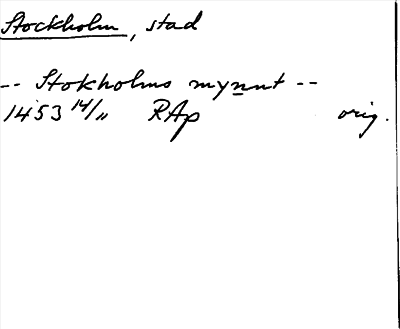 Stockholm, stad
-- Stokholms mynnt --
1453 14/11 RAp orig.